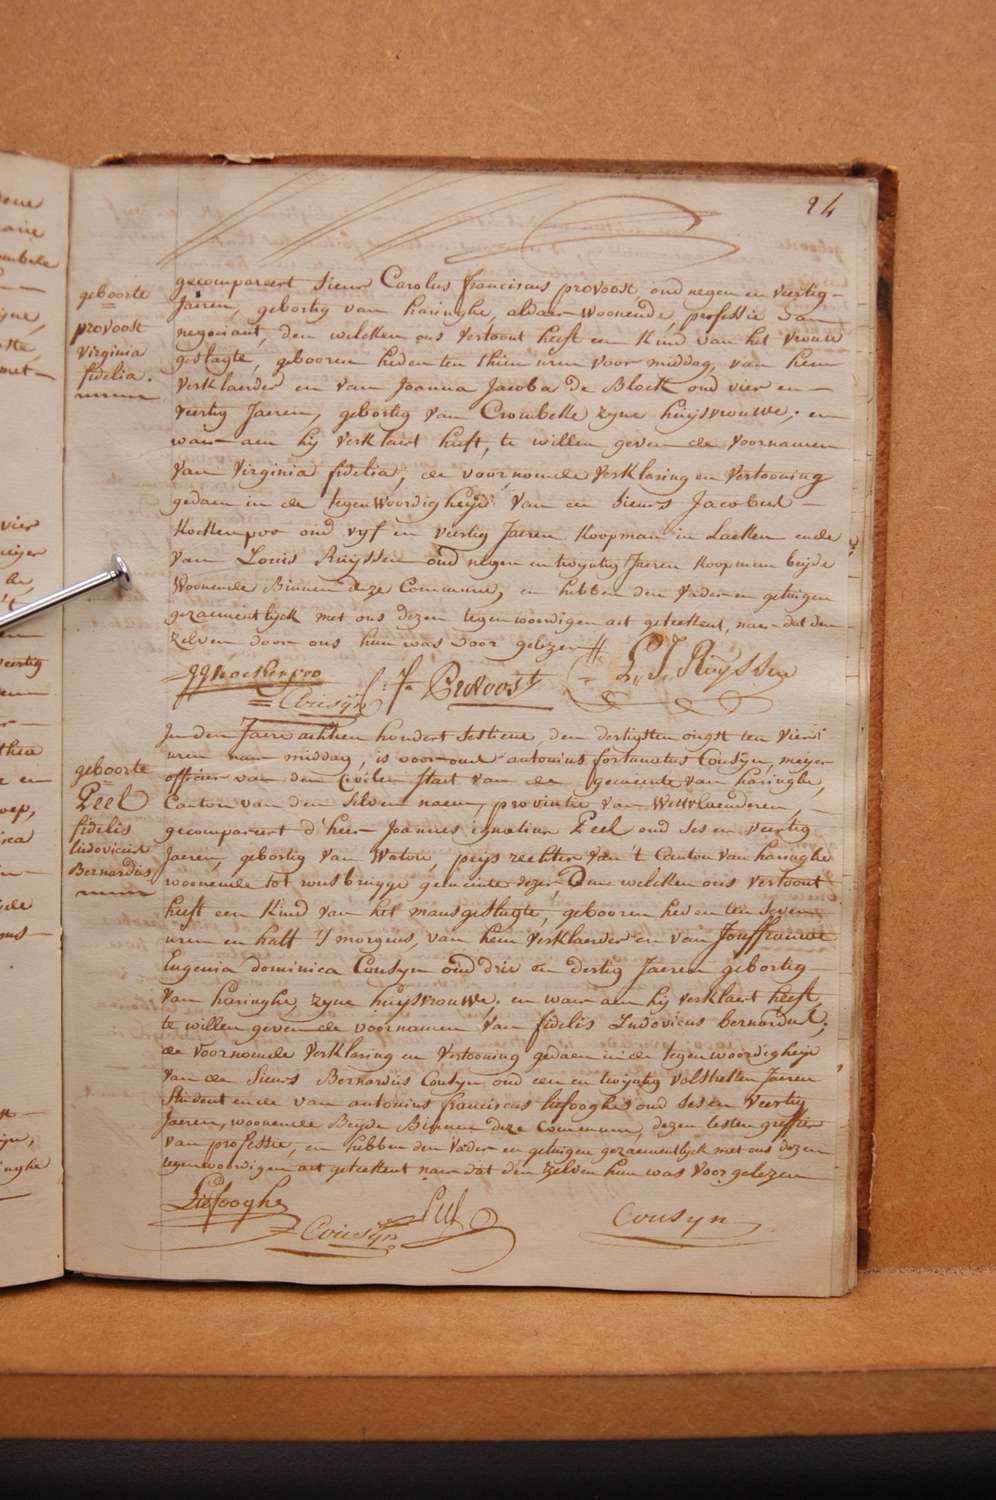 24
geboorte
provoost
Virginia
fidelia.
gecompareert sieur Carolus franciscus provoost oud negen en veertig
Jaeren, gebortig van haringhe, aldaer woonende, professie van
negociant, den welcken ons vertoont heeft een Kind van het vrouw
geslagte, gebooren heden ten thien uren voor middag, van hem
Verklaerder en van Joanna Jacoba De Block oud vier en
veertig Jaeren, gebortig van Crombeke zyne huysvrouwe; en
waer aen hij verklaert heeft, te willen geven de voornamen
van Virginia fidelia; de voornoemde Verklaring en Vertooning
gedaen in de tegenwoordigheijd van de sieurs Jacobus
Kockenpoo oud vyf en veertig Jaeren Koopman in Laeken ende
van Louis Ruyssen oud negen en twyntig Jaeren Koopman beijde
Woonende Binnen deze Commune, en hebben den Vader en getuigen
gezaementlyck met ons dezen tegenwoordigen act geteekent, naer dat den
zelven door ons hun was Voor gelezen
JJ Kockenpoo
C: f. Provoost
L. J. Ruijssen
Cousijn
geboorte
Peel
fidelis
ludovicus
Bernardus
In den Jaere achthien hondert sesthiene, den dertigsten ougst ten vier
uren naer middag, is voor ons antonius fortunatus Cousyn, meyer
officier van den Civilen Staet van de gemeente van haringhe,
Canton van den selven naem, provintie van Westvlaenderen,
gecompareert d'heer Joannes ignatius Peel oud ses en veertig
Jaeren, gebortig van Watou, peijs rechter van 't Canton van haringhe
woonende tot rousbrugge gemeente dezer, Den welcken ons vertoont
heeft een Kind van het mansgeslagte, gebooren heden ten seven
uren en half 's morgens, van hem Verklaerder en van Jouffrauwe
Eugenia dominica Cousyn oud drie en dertig Jaeren gebortig
Van haringhe, zyne huysvrouwe. en waer aen hij verklaert heeft
te willen geven de voornamen van fidelis Ludovicus bernardus;
de voornoemde Verklaring en Vertooning gedaen in de tegenwoordigheijd
van de Sieurs Bernardus Cousyn oud een en twyntig volstrekten Jaeren
Student en de van antonius franciscus liefooghe oud ses en veertig
Jaeren, woonende Beyde Binnen deze Commune, dezen lesten greffier
van professie, en hebben den vader en getuigen gezaementlyck met ons dezen
tegenwoordigen act geteekent naer dat den zelven hun was voor gelezen
Liefooghe
Peel
Cousyn
Cousijn